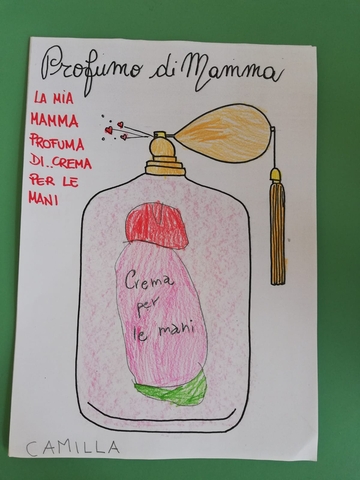 Profumo di Mamma
LA MIA
MAMMA
PROFUMA
DI..CREMA
PER LE
MANI
Crema
per
le mani
CAMILLA